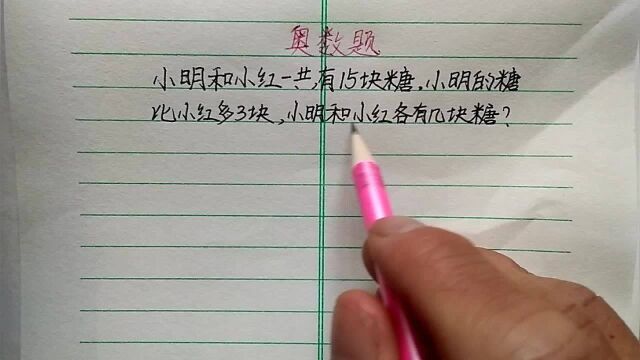 奥数题
小明和小红一共有15块糖,小明的糖
比小红多3块,小明和小红各有几块糖?